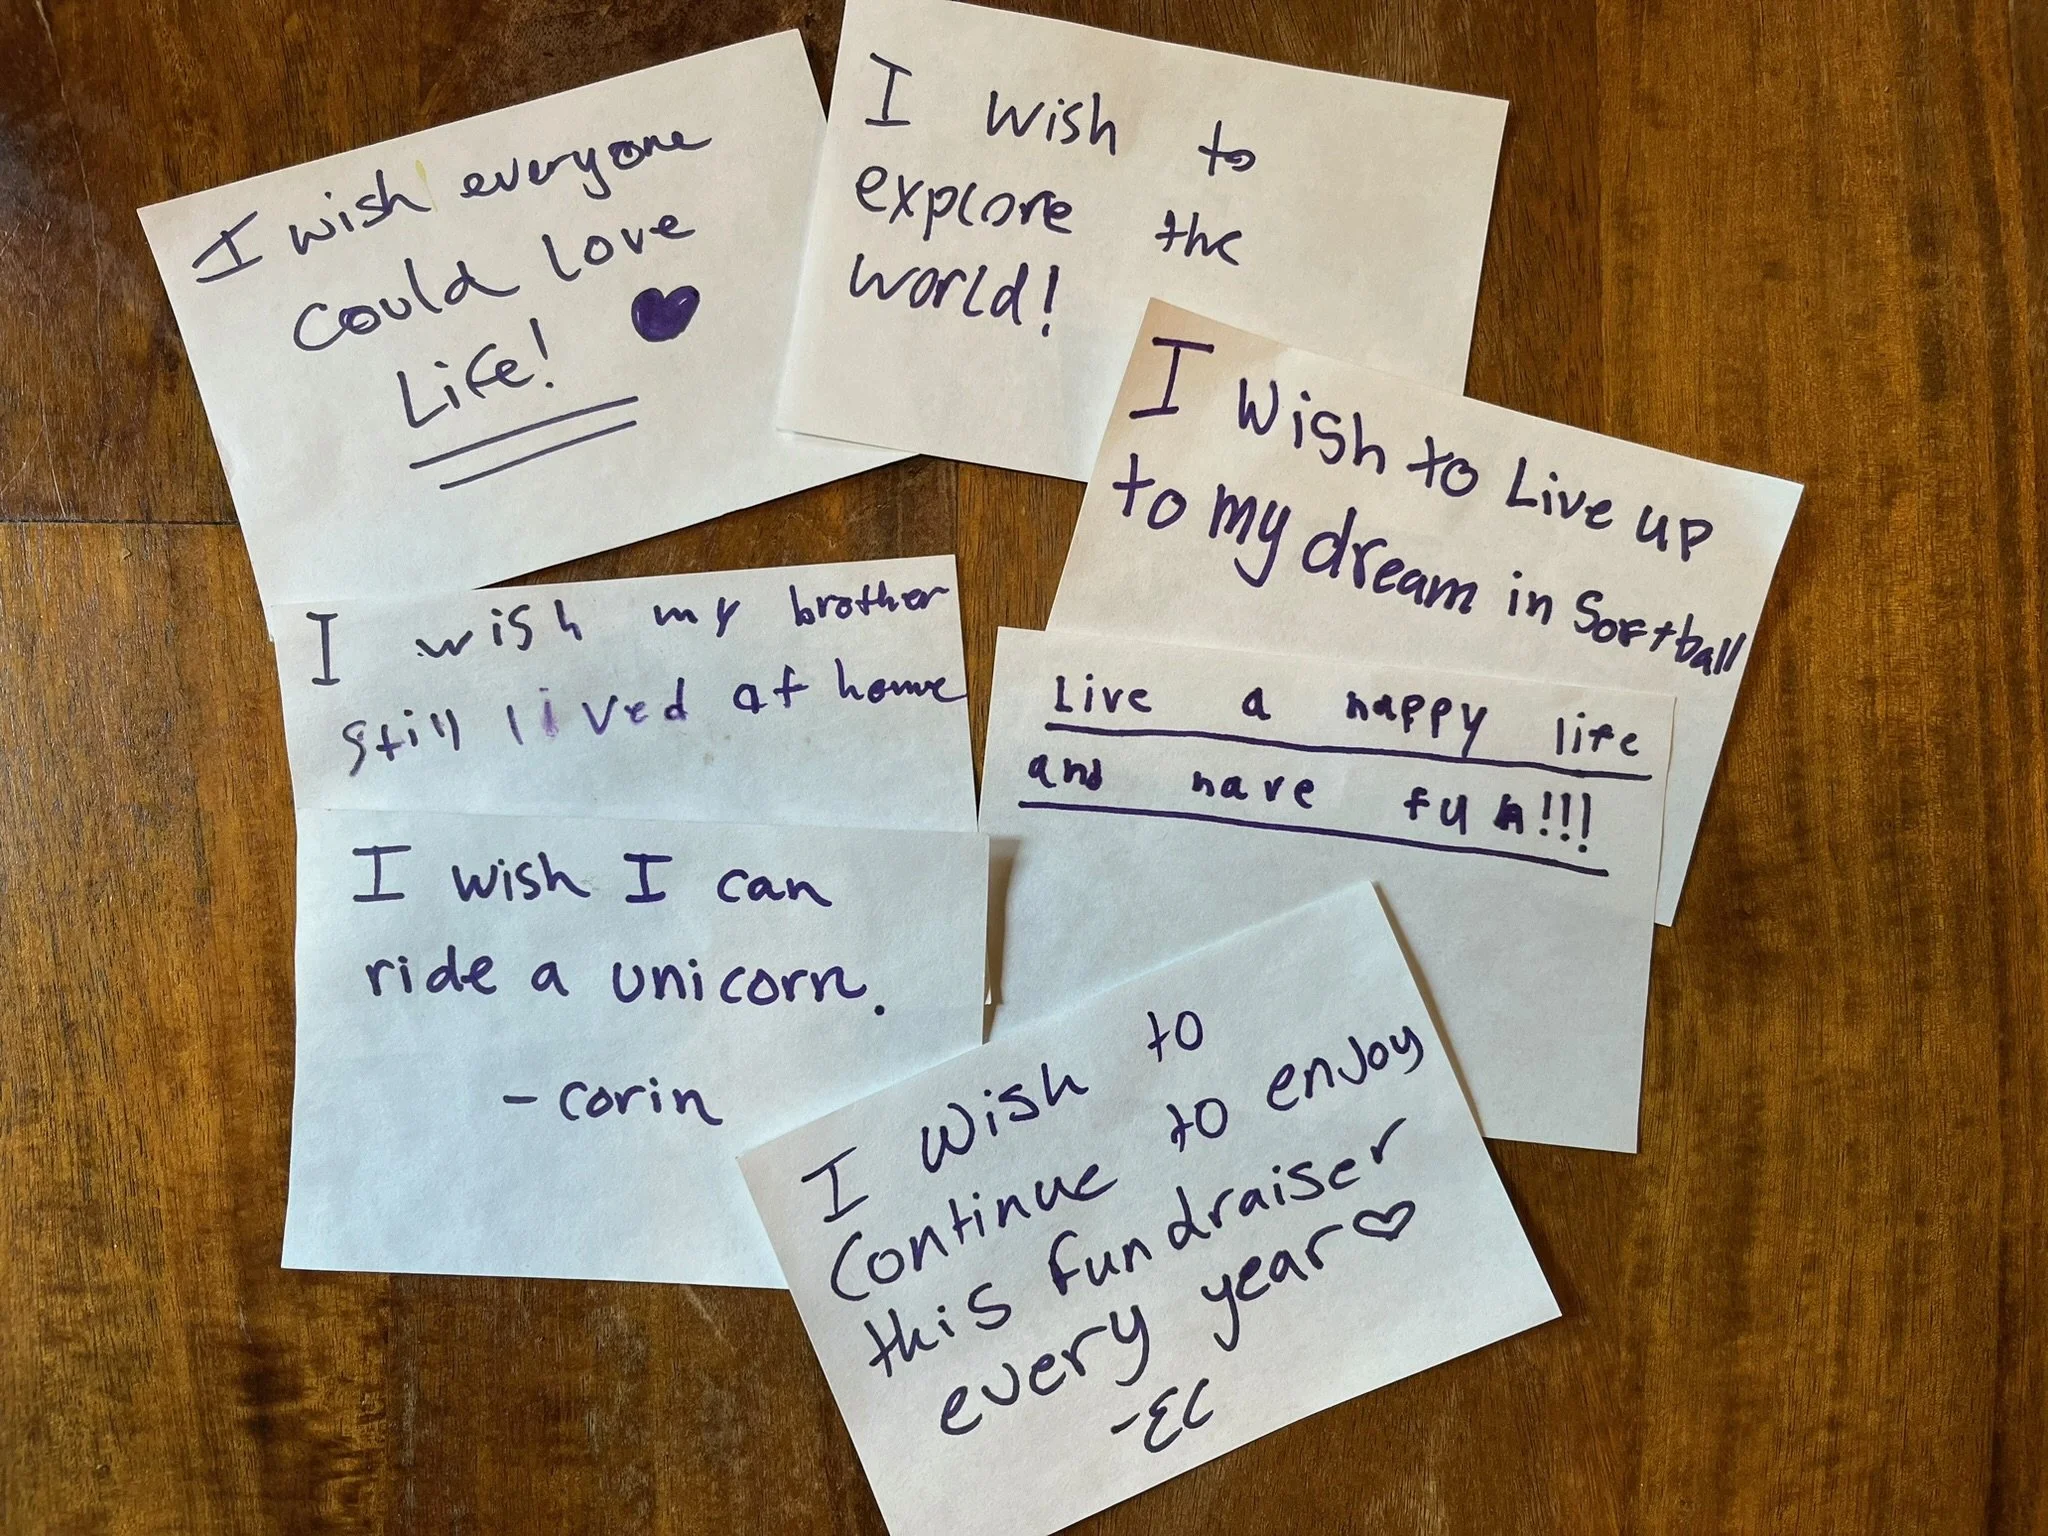 I wish everyone
could love
Life!
I wish to
explore the
world!
I wish to Live up
to my dream in Softball
I wish my brother
still lived at home
Live a happy life
and have fun!!!
I wish I can
ride a unicorn.
- corin
I wish to
continue to enjoy
this fundraiser
every year♡
-EC